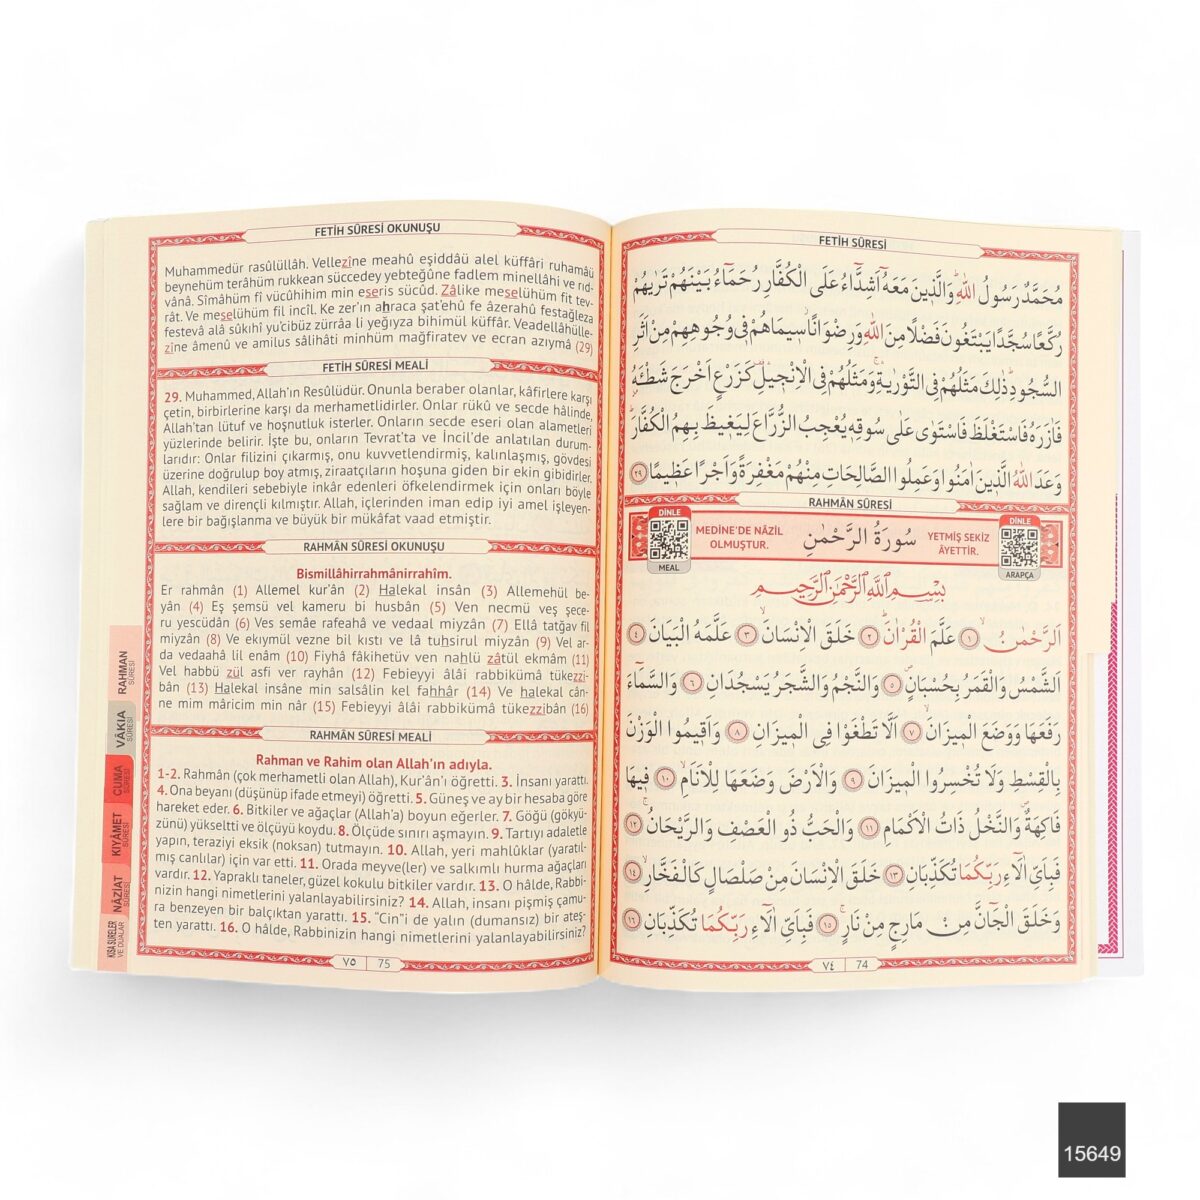 FETİH SÛRESİ OKUNUŞU
Muhammedür rasûlüllâh. Vellezîne meahû eşiddâü alel küffâri ruhamâü
beynehüm terâhüm rukkean süccedey yebteğûne fadlem minellâhi ve rıd-
vânâ. Sîmâhüm fî vücûhihim min eseris sücûd. Zâlike meselühüm fit tev-
rât. Ve meselühüm fil incîl. Ke zer'ın ahraca şat'ehû fe âzerahû festağleza
festevâ alâ sûkıhî yu'cibüz zürrâa li yeğıyza bihimül küffâr. Veadellâhülle-
zîne âmenû ve amilus sâlihâti minhüm mağfiratev ve ecran azıymâ (29)
FETİH SÛRESİ MEALİ
29. Muhammed, Allah'ın Resûlüdür. Onunla beraber olanlar, kâfirlere karşı
çetin, birbirlerine karşı da merhametlidirler. Onlar rükû ve secde hâlinde,
Allah'tan lütuf ve hoşnutluk isterler. Onların secde eseri olan alametleri
yüzlerinde belirir. İşte bu, onların Tevrat'ta ve İncil'de anlatılan durum-
larıdır: Onlar filizini çıkarmış, onu kuvvetlendirmiş, kalınlaşmış, gövdesi
üzerine doğrulup boy atmış, ziraatçıların hoşuna giden bir ekin gibidirler.
Allah, kendileri sebebiyle inkâr edenleri öfkelendirmek için onları böyle
sağlam ve dirençli kılmıştır. Allah, içlerinden iman edip iyi amel işleyen-
lere bir bağışlanma ve büyük bir mükâfat vaad etmiştir.
RAHMÂN SÛRESİ OKUNUŞU
Bismillâhirrahmânirrahîm.
Er rahmân (1) Allemel kur'ân (2) Halekal insân (3) Allemehül be-
yân (4) Eş şemsü vel kameru bi husbân (5) Ven necmü veş şece-
ru yescüdân (6) Ves semâe rafeahâ ve vedaal miyzân (7) Ellâ tatğav fil
miyzân (8) Ve ekıymül vezne bil kıstı ve lâ tuhsirul miyzân (9) Vel ar-
da vedaahâ lil enâm (10) Fiyhâ fâkihetüv ven nahlü zâtül ekmâm (11)
Vel habbü zül asfi ver rayhân (12) Febieyyi âlâi rabbikümâ tükezzi-
bân (13) Halekal insâne min salsâlin kel fahhâr (14) Ve halekal cân-
ne mim mâricim min nâr (15) Febieyyi âlâi rabbikümâ tükezzibân (16)
RAHMÂN SÛRESİ MEALİ
Rahman ve Rahim olan Allah'ın adıyla.
1-2. Rahmân (çok merhametli olan Allah), Kur'ân'ı öğretti. 3. İnsanı yarattı.
4. Ona beyanı (düşünüp ifade etmeyi) öğretti. 5. Güneş ve ay bir hesaba göre
hareket eder. 6. Bitkiler ve ağaçlar (Allah'a) boyun eğerler. 7. Göğü (gökyü-
zünü) yükseltti ve ölçüyü koydu. 8. Ölçüde sınırı aşmayın. 9. Tartıyı adaletle
yapın, teraziyi eksik (noksan) tutmayın. 10. Allah, yeri mahlûklar (yaratıl-
mış canlılar) için var etti. 11. Orada meyve(ler) ve salkımlı hurma ağaçları
vardır. 12. Yapraklı taneler, güzel kokulu bitkiler vardır. 13. O hâlde, Rabbi-
nizin hangi nimetlerini yalanlayabilirsiniz? 14. Allah, insanı pişmiş çamu-
ra benzeyen bir balçıktan yarattı. 15. "Cin"i de yalın (dumansız) bir ateş-
ten yarattı. 16. O hâlde, Rabbinizin hangi nimetlerini yalanlayabilirsiniz?
٧٥ 75
RAHMAN SÛRESİ
VÂKIA SÛRESİ
CUMA SÛRESİ
KIYÂMET SÛRESİ
NÂZİAT SÛRESİ
KISA SÛRELER VE DUALAR
FETİH SÛRESİ
مُحَمَّدٌ رَسُولُ اللّٰهِ وَالَّذ۪ينَ مَعَهُٓ اَشِدَّٓاءُ عَلَى الْكُفَّارِ رُحَمَٓاءُ بَيْنَهُمْ تَرٰيهُمْ
رُكَّعًا سُجَّدًا يَبْتَغُونَ فَضْلًا مِنَ اللّٰهِ وَرِضْوَانًا س۪يمَاهُمْ ف۪ي وُجُوهِهِمْ مِنْ اَثَرِ
السُّجُودِ ذٰلِكَ مَثَلُهُمْ فِي التَّوْرٰيةِ وَمَثَلُهُمْ فِي الْاِنْج۪يلِ كَزَرْعٍ اَخْرَجَ شَطْـَٔهُ
فَاٰزَرَهُ فَاسْتَغْلَظَ فَاسْتَوٰى عَلٰى سُوقِه۪ يُعْجِبُ الزُّرَّاعَ لِيَغ۪يظَ بِهِمُ الْكُفَّارَ
وَعَدَ اللّٰهُ الَّذ۪ينَ اٰمَنُوا وَعَمِلُوا الصَّالِحَاتِ مِنْهُمْ مَغْفِرَةً وَاَجْرًا عَظ۪يمًا ٢٩
RAHMÂN SÛRESİ
DİNLE
MEAL
MEDİNE'DE NÂZİL
OLMUŞTUR.
سُورَةُ الرَّحْمٰنِ
YETMİŞ SEKİZ
ÂYETTİR.
DİNLE
ARAPÇA
بِسْمِ اللّٰهِ الرَّحْمٰنِ الرَّح۪يمِ
اَلرَّحْمٰنُ ١ عَلَّمَ الْقُرْاٰنَ ٢ خَلَقَ الْاِنْسَانَ ٣ عَلَّمَهُ الْبَيَانَ ٤
اَلشَّمْسُ وَالْقَمَرُ بِحُسْبَانٍ ٥ وَالنَّجْمُ وَالشَّجَرُ يَسْجُدَانِ ٦ وَالسَّمَٓاءَ
رَفَعَهَا وَوَضَعَ الْم۪يزَانَ ٧ اَلَّا تَطْغَوْا فِي الْم۪يزَانِ ٨ وَاَق۪يمُوا الْوَزْنَ
بِالْقِسْطِ وَلَا تُخْسِرُوا الْم۪يزَانَ ٩ وَالْاَرْضَ وَضَعَهَا لِلْاَنَامِ ١٠ ف۪يهَا
فَاكِهَةٌ وَالنَّخْلُ ذَاتُ الْاَكْمَامِ ١١ وَالْحَبُّ ذُو الْعَصْفِ وَالرَّيْحَانُ ١٢
فَبِاَيِّ اٰلَٓاءِ رَبِّكُمَا تُكَذِّبَانِ ١٣ خَلَقَ الْاِنْسَانَ مِنْ صَلْصَالٍ كَالْفَخَّارِ ١٤
وَخَلَقَ الْجَٓانَّ مِنْ مَارِجٍ مِنْ نَارٍ ١٥ فَبِاَيِّ اٰلَٓاءِ رَبِّكُمَا تُكَذِّبَانِ ١٦
٧٤ 74
15649